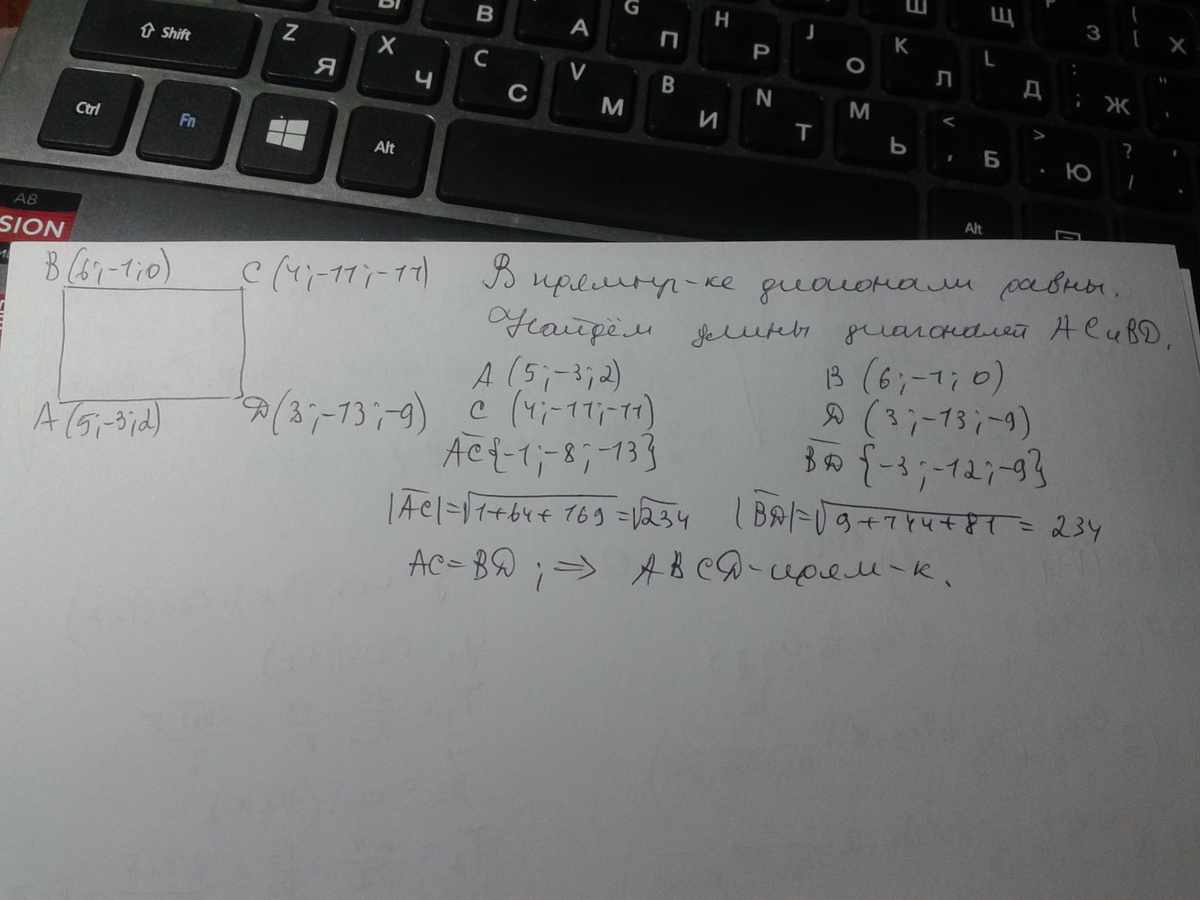 Shift Z Я X Ч C С V М B И N Т M Ь < , Б > . Ю ? / .
Ы В А G П H Р J О K Л L Д : ; Ж " ' Ш Щ З { [ Х
Ctrl Fn Alt Alt
A8
SION
B (6;-1;0) C (4;-11;-11)
A (5;-3;2) D (3;-13;-9)
В прямоуг-ке диагонали равны.
Найдём длины диагоналей AC и BD.
A (5;-3;2) B (6;-1;0)
C (4;-11;-11) D (3;-13;-9)
AC{-1;-8;-13} BD{-3;-12;-9}
|AC|=√1+64+169=√234 |BD|=√9+144+81=234
AC=BD; ⇒ ABCD-прям-к.